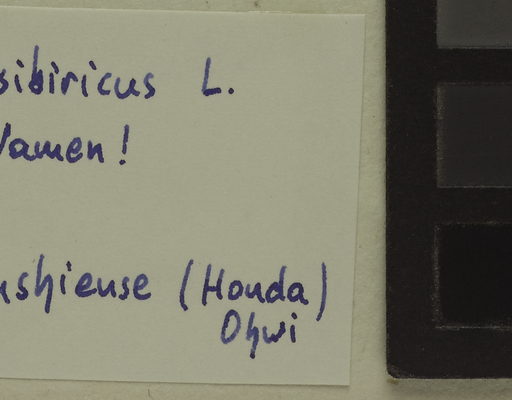 sibiricus L.
Namen!
ushiense (Honda)
Ohwi